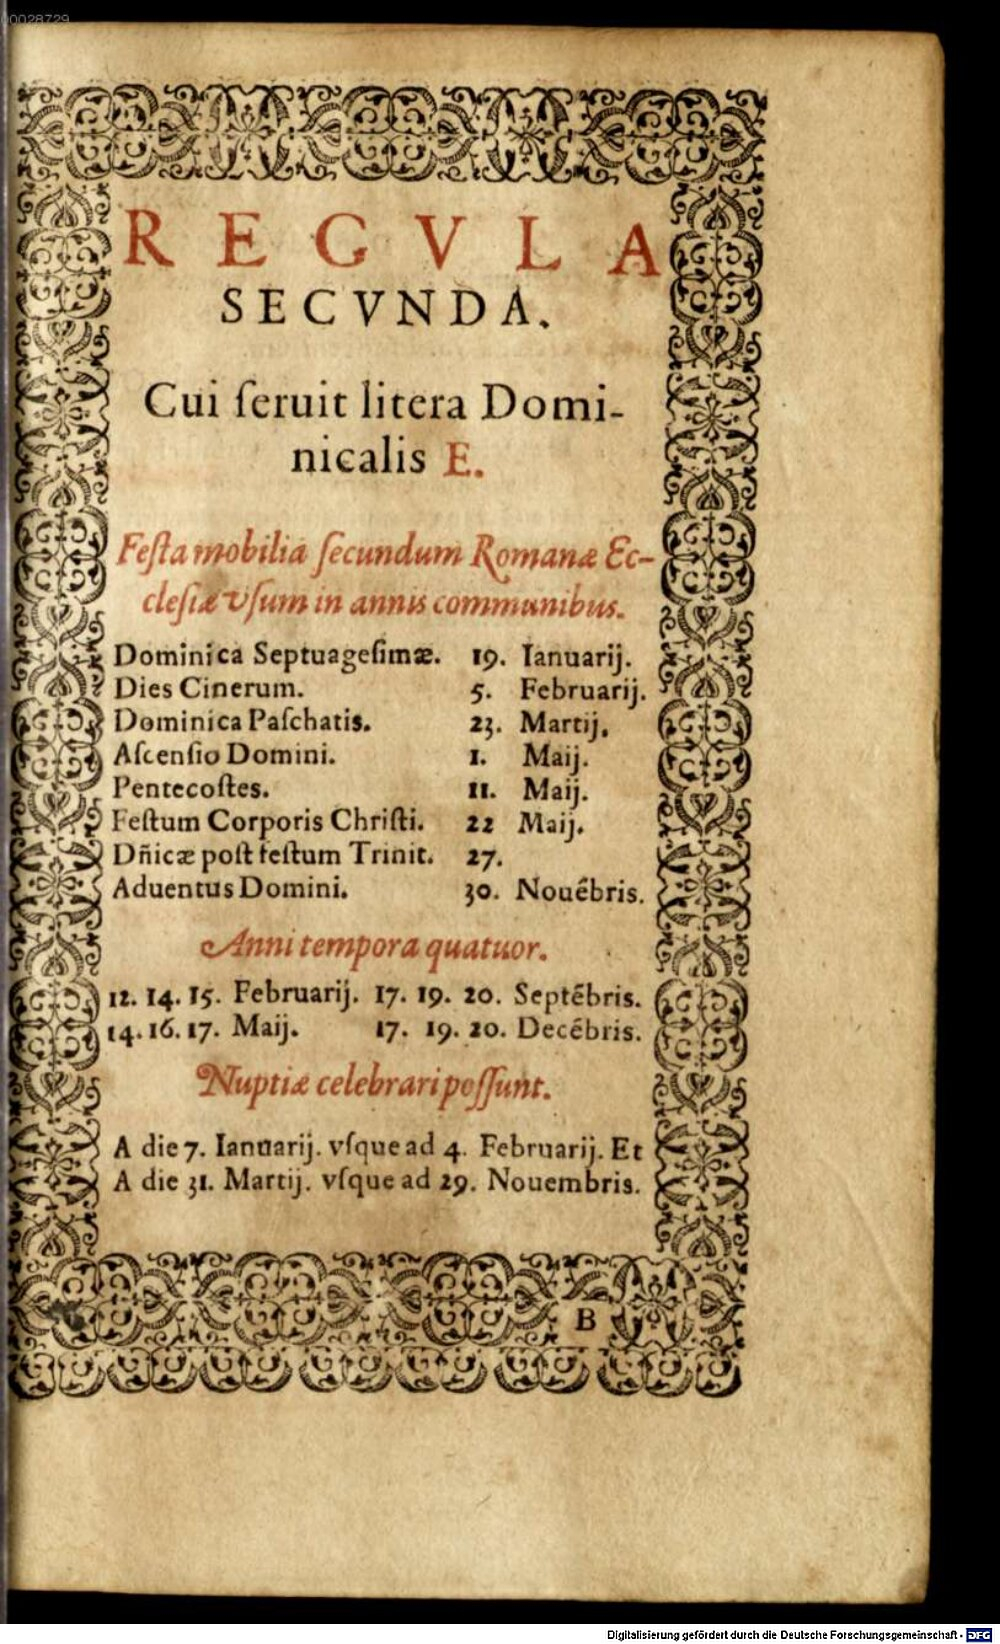 00028729
REGVLA
SECVNDA.
Cui ſeruit litera Domi-
nicalis E.
Feſta mobilia ſecundum Romanæ Ec-
cleſiæ vſum in annis communibus.
Dominica Septuageſimæ. 19. Ianuarij.
Dies Cinerum. 5. Februarij.
Dominica Paſchatis. 23. Martij.
Aſcenſio Domini. 1. Maij.
Pentecoſtes. 11. Maij.
Feſtum Corporis Chriſti. 22 Maij.
Dñicæ poſt feſtum Trinit. 27.
Aduentus Domini. 30. Nouẽbris.
Anni tempora quatuor.
12. 14. 15. Februarij. 17. 19. 20. Septẽbris.
14. 16. 17. Maij. 17. 19. 20. Decẽbris.
Nuptiæ celebrari poſſunt.
A die 7. Ianuarij. vſque ad 4. Februarij. Et
A die 31. Martij. vſque ad 29. Nouembris.
B
Digitalisierung gefördert durch die Deutsche Forschungsgemeinschaft - DFG